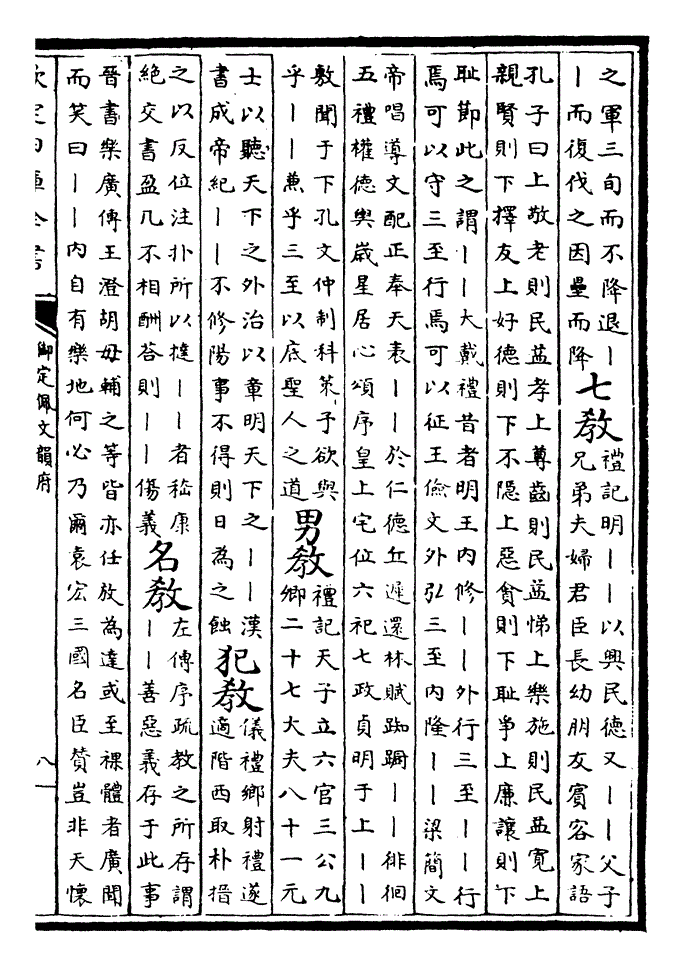 之軍三旬而不降退｜
｜而復伐之因壘而降
七教
禮記明｜｜以興民德又｜｜父子
兄弟夫婦君臣長幼朋友賓客家語
孔子曰上敬老則民益孝上尊齒則民益悌上樂施則民益寬上
親賢則下擇友上好德則下不隠上惡貪則下恥爭上廉讓則下
恥節此之謂｜｜大戴禮昔者明王内修｜｜外行三至｜｜行
焉可以守三至行焉可以征王儉文外弘三至内隆｜｜梁簡文
帝唱導文配正奉天表｜｜於仁德丘遲還林賦踟蹰｜｜徘徊
五禮權德輿歲星居心頌序皇上宅位六祀七政貞明于上｜｜
敷聞于下孔文仲制科策子欲與
乎｜｜兼乎三至以底聖人之道
男教
禮記天子立六官三公九
卿二十七大夫八十一元
士以聽天下之外治以章明天下之｜｜漢
書成帝紀｜｜不修陽事不得則日為之蝕
犯教
儀禮鄉射禮遂
適階西取朴搢
之以反位注扑所以撻｜｜者嵇康
絶交書盈几不相酬答則｜｜傷義
名教
左傳序疏教之所存謂
｜｜善惡義存于此事
晉書樂廣傳王澄胡毋輔之等皆亦任放為達或至裸體者廣聞
而笑曰｜｜内自有樂地何必乃爾袁宏三國名臣贊豈非天懷
欽定四庫全書
御定佩文韻府
八